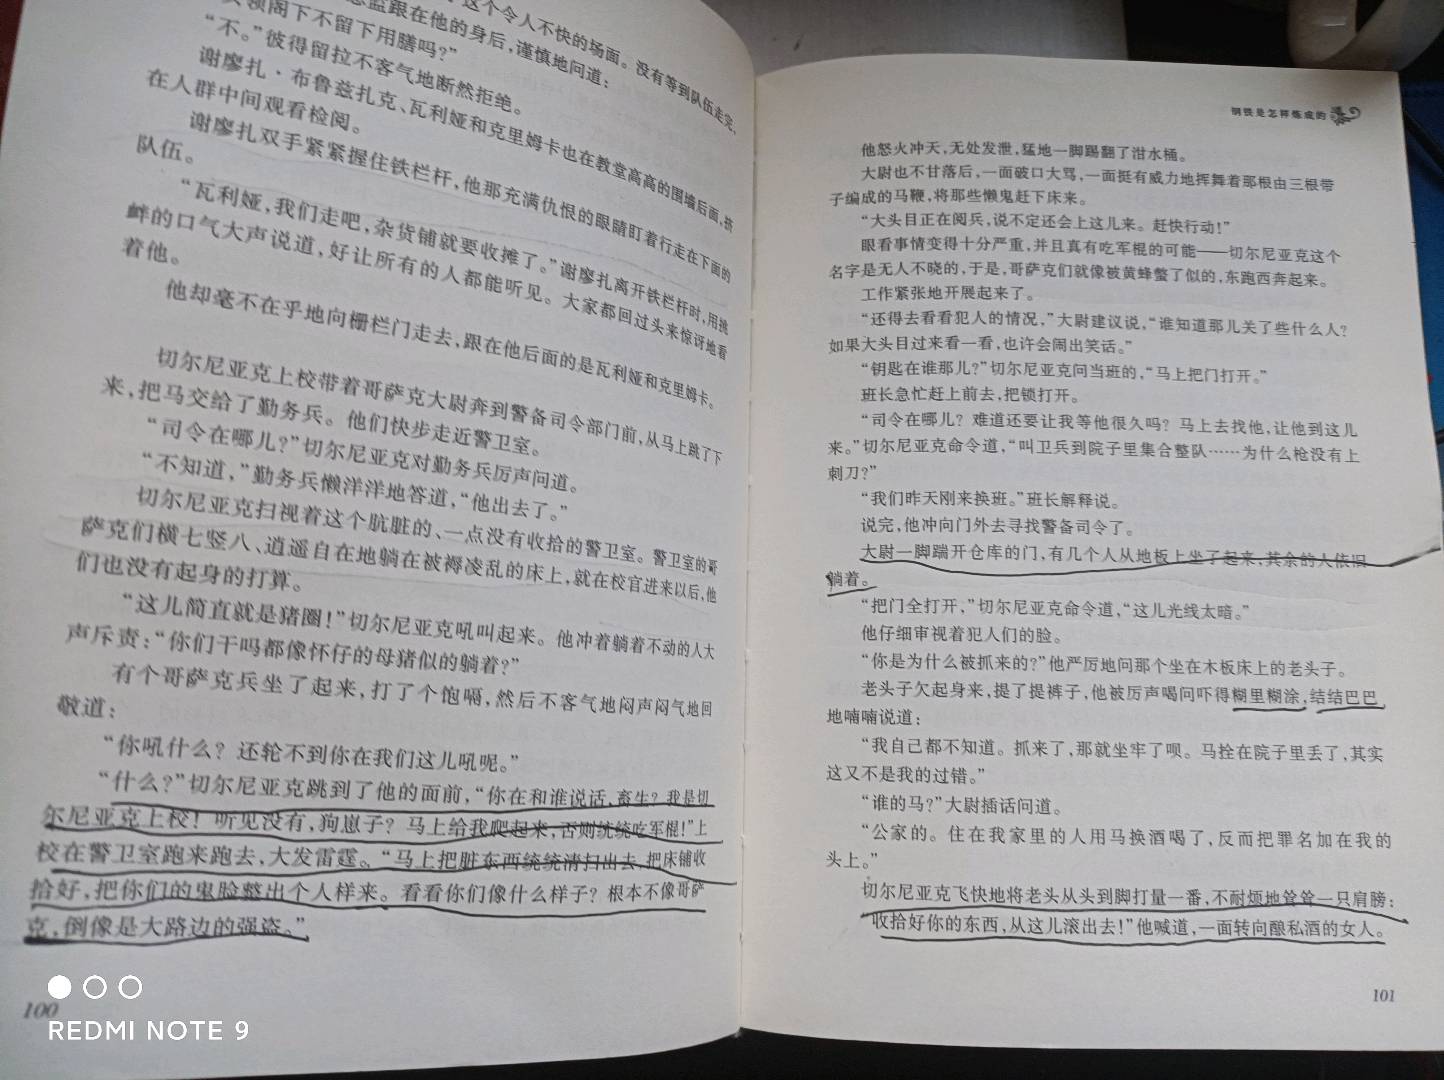 这个令人不快的场面。没有等到队伍走完，
跟在他的身后，谨慎地问道：
领阁下不留下用膳吗？”
“不。”彼得留拉不客气地断然拒绝。
谢廖扎·布鲁兹扎克、瓦利娅和克里姆卡也在教堂高高的围墙后面，挤
在人群中间观看检阅。
谢廖扎双手紧紧握住铁栏杆，他那充满仇恨的眼睛盯着行走在下面的
队伍。
“瓦利娅，我们走吧，杂货铺就要收摊了。”谢廖扎离开铁栏杆时，用挑
衅的口气大声说道，好让所有的人都能听见。大家都回过头来惊讶地看
着他。
他却毫不在乎地向栅栏门走去，跟在他后面的是瓦利娅和克里姆卡。
切尔尼亚克上校带着哥萨克大尉奔到警备司令部门前，从马上跳了下
来，把马交给了勤务兵。他们快步走近警卫室。
“司令在哪儿？”切尔尼亚克对勤务兵厉声问道。
“不知道，”勤务兵懒洋洋地答道，“他出去了。”
切尔尼亚克扫视着这个肮脏的、一点没有收拾的警卫室。警卫室的哥
萨克们横七竖八、逍遥自在地躺在被褥凌乱的床上，就在校官进来以后，他
们也没有起身的打算。
“这儿简直就是猪圈！”切尔尼亚克吼叫起来。他冲着躺着不动的人大
声斥责：“你们干吗都像怀仔的母猪似的躺着？”
有个哥萨克兵坐了起来，打了个饱嗝，然后不客气地闷声闷气地回
敬道：
“你吼什么？还轮不到你在我们这儿吼呢。”
“什么？”切尔尼亚克跳到了他的面前，“你在和谁说话，畜生？我是切
尔尼亚克上校！听见没有，狗崽子？马上给我爬起来，否则统统吃军棍！”上
校在警卫室跑来跑去，大发雷霆。“马上把脏东西统统清扫出去，把床铺收
拾好，把你们的鬼脸整出个人样来。看看你们像什么样子？根本不像哥萨
克，倒像是大路边的强盗。”
100
REDMI NOTE 9
钢铁是怎样炼成的
他怒火冲天，无处发泄，猛地一脚踢翻了泔水桶。
大尉也不甘落后，一面破口大骂，一面挺有威力地挥舞着那根由三根带
子编成的马鞭，将那些懒鬼赶下床来。
“大头目正在阅兵，说不定还会上这儿来。赶快行动！”
眼看事情变得十分严重，并且真有吃军棍的可能——切尔尼亚克这个
名字是无人不晓的，于是，哥萨克们就像被黄蜂螫了似的，东跑西奔起来。
工作紧张地开展起来了。
“还得去看看犯人的情况，”大尉建议说，“谁知道那儿关了些什么人？
如果大头目过来看一看，也许会闹出笑话。”
“钥匙在谁那儿？”切尔尼亚克问当班的，“马上把门打开。”
班长急忙赶上前去，把锁打开。
“司令在哪儿？难道还要让我等他很久吗？马上去找他，让他到这儿
来。”切尔尼亚克命令道，“叫卫兵到院子里集合整队……为什么枪没有上
刺刀？”
“我们昨天刚来换班。”班长解释说。
说完，他冲向门外去寻找警备司令了。
大尉一脚踹开仓库的门，有几个人从地板上坐了起来，其余的人依旧
躺着。
“把门全打开，”切尔尼亚克命令道，“这儿光线太暗。”
他仔细审视着犯人们的脸。
“你是为什么被抓来的？”他严厉地问那个坐在木板床上的老头子。
老头子欠起身来，提了提裤子，他被厉声喝问吓得糊里糊涂，结结巴巴
地喃喃说道：
“我自己都不知道。抓来了，那就坐牢了呗。马拴在院子里丢了，其实
这又不是我的过错。”
“谁的马？”大尉插话问道。
“公家的。住在我家里的人用马换酒喝了，反而把罪名加在我的
头上。”
切尔尼亚克飞快地将老头从头到脚打量一番，不耐烦地耸耸一只肩膀：
“收拾好你的东西，从这儿滚出去！”他喊道，一面转向酿私酒的女人。
101